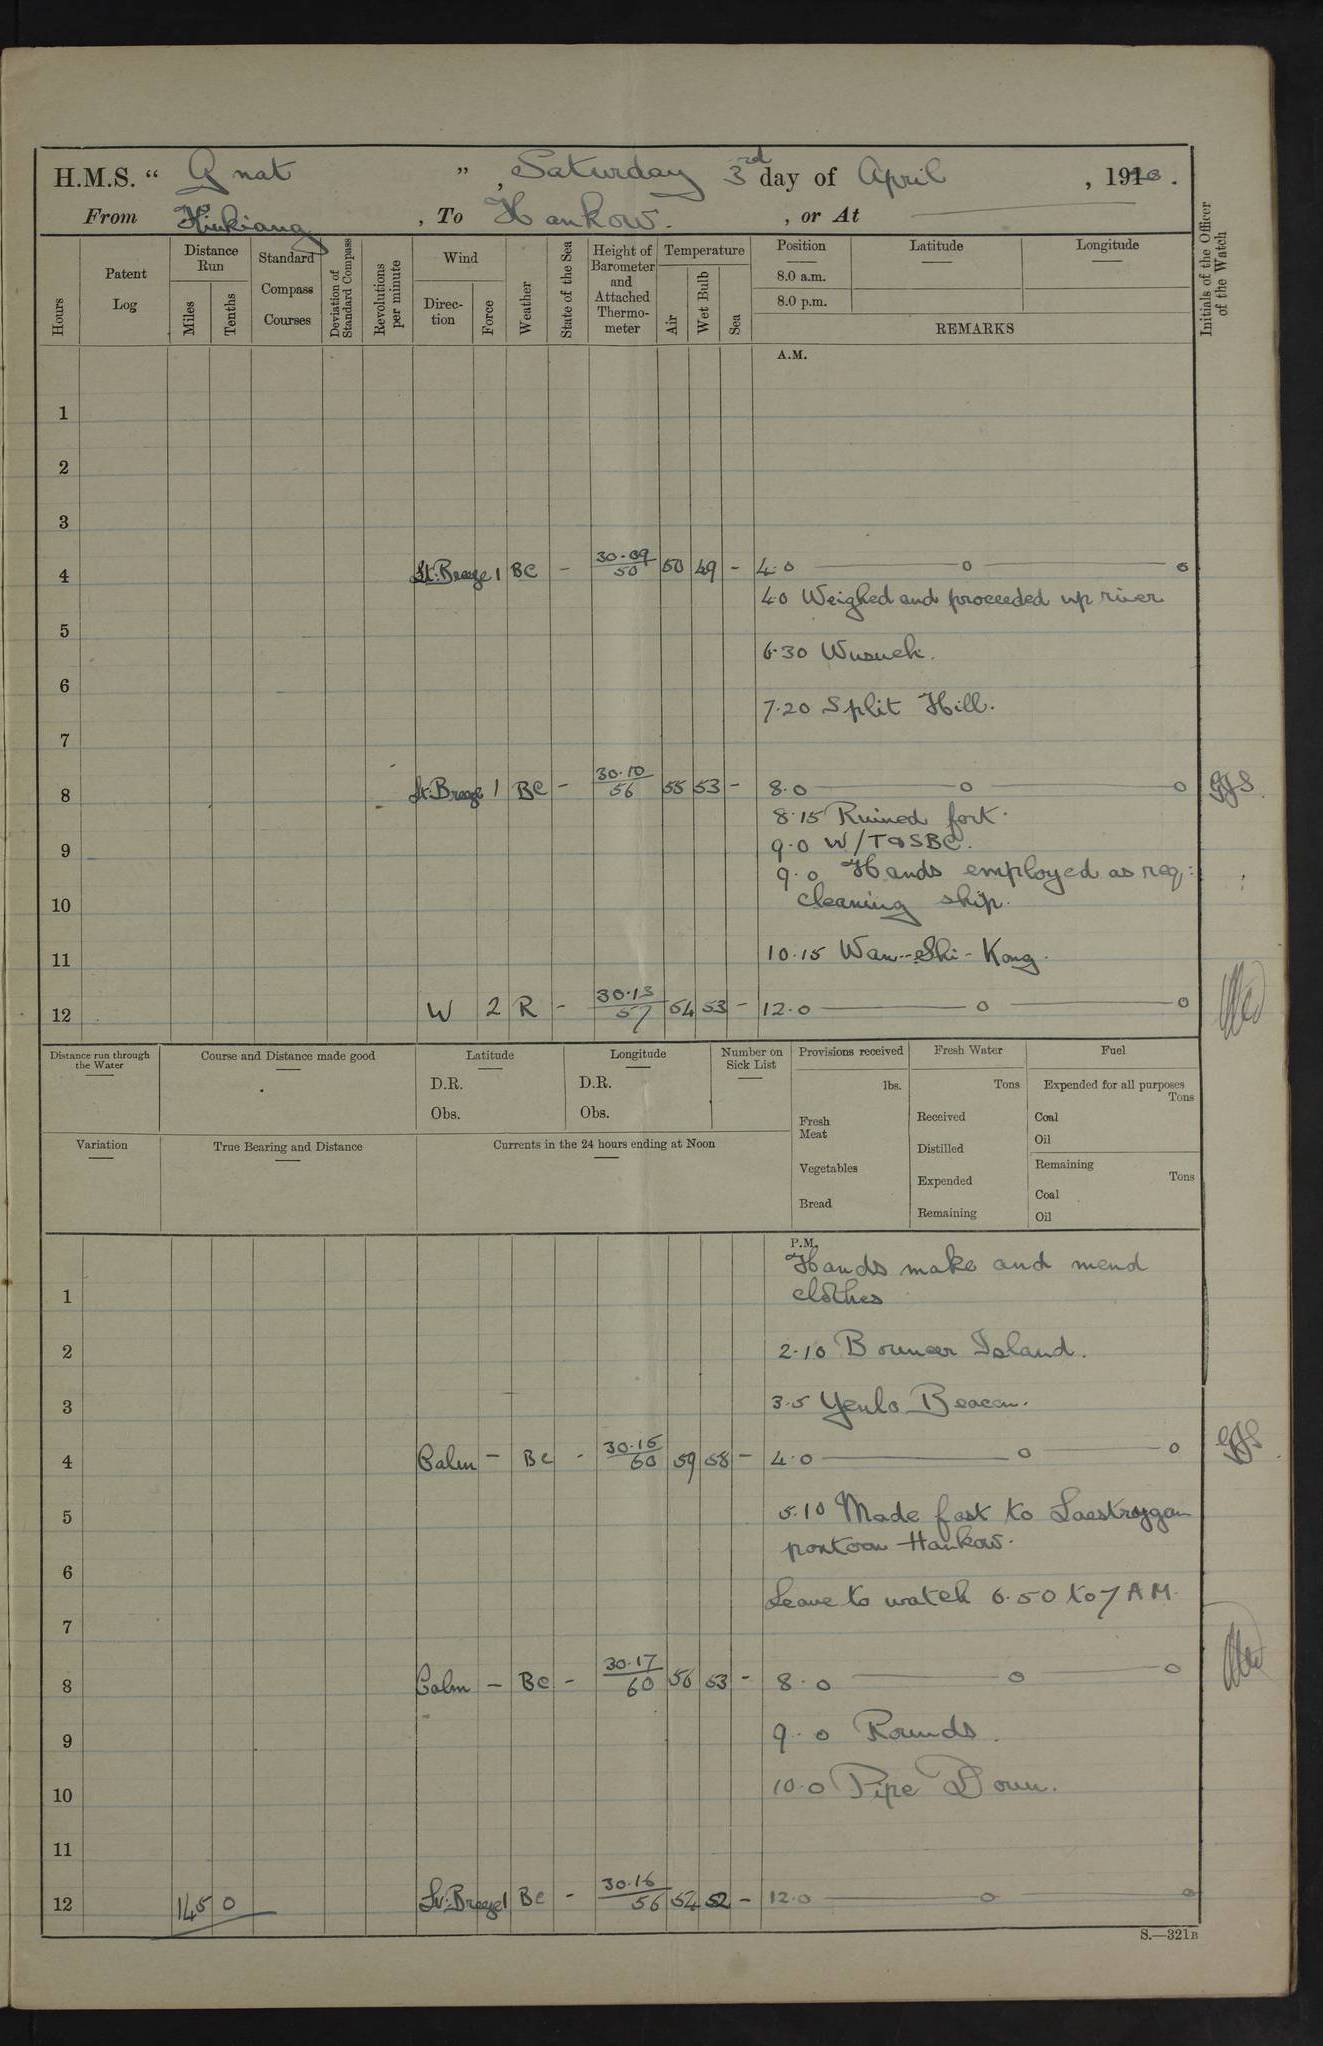 H.M.S. “ Gnat ”, Saturday 3rd day of April , 1920.
From Kiukiang , To Hankow. , or At
Hours
Patent Log
Distance Run
Miles
Tenths
Standard Compass Courses
Deviation of Standard Compass
Revolutions per minute
Wind
Direc-tion
Force
Weather
State of the Sea
Height of Barometer and Attached Thermo-meter
Temperature
Air
Wet Bulb
Sea
Position
8.0 a.m.
8.0 p.m.
Latitude
Longitude
REMARKS
Initials of the Officer of the Watch
A.M.
1
2
3
4 Lt. Breeze 1 BC - 30.09/50 50 49 - 4.0 — o — o
4.0 Weighed and proceeded up river
5
6.30 Wusueh.
6
7.20 Split Hill.
7
8 Lt. Breeze 1 BC - 30.10/56 55 53 - 8.0 — o — o
8.15 Ruined fort.
9.0 W/T SBC.
9
9.0 Hands employed as req:
cleaning ship.
10
10.15 Wan-Shi-Kong.
11
12 W 2 R - 30.13/57 54 53 - 12.0 — o — o
Distance run through the Water
Course and Distance made good
Latitude
D.R.
Obs.
Longitude
D.R.
Obs.
Number on Sick List
Provisions received
lbs.
Fresh Meat
Vegetables
Bread
Fresh Water
Tons
Received
Distilled
Expended
Remaining
Fuel
Expended for all purposes
Tons
Coal
Oil
Remaining
Tons
Coal
Oil
Variation
True Bearing and Distance
Currents in the 24 hours ending at Noon
P.M.
Hands make and mend
clothes
1
2 2.10 Bouncer Island.
3 3.5 Yenlo Beacon.
4 Calm - BC - 30.15/60 59 58 - 4.0 — o — o
5 5.10 Made fast to Laestrygon
pontoon Hankow.
6
Leave to watch 6.50 to 7 AM.
7
8 Calm - BC - 30.17/60 56 53 - 8.0 — o — o
9 9.0 Rounds.
10 10.0 Pipe Down.
11
12 145 0 Lt. Breeze 1 BC - 30.16/56 54 52 - 12.0 — o — o
S.—321B